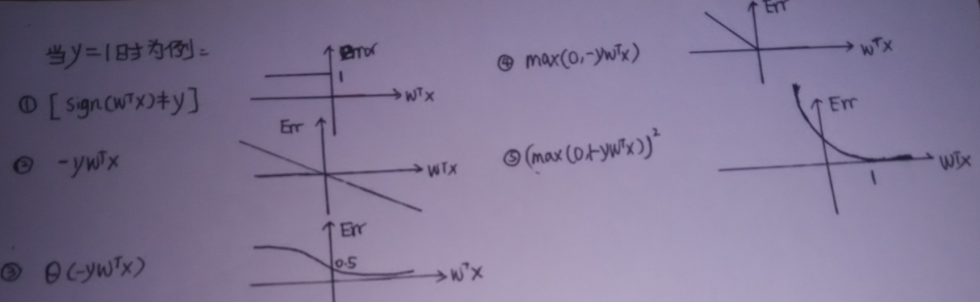 当y=1时为例:
① [sign(wᵀx)≠y]
Error
1
wᵀx
② -ywᵀx
Err
wᵀx
③ θ(-ywᵀx)
Err
0.5
wᵀx
④ max(0,-ywᵀx)
Err
wᵀx
⑤ (max(0,1-ywᵀx))²
Err
1
wᵀx